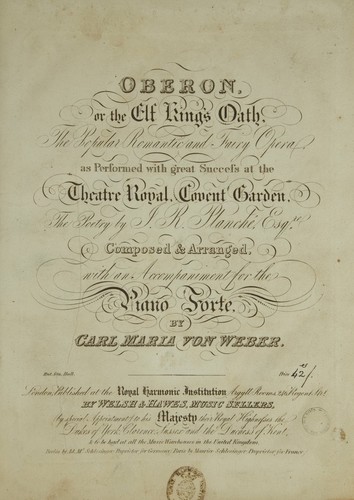 OBERON,
or the Elf King's Oath,
The Popular Romantic and Fairy Opera,
as Performed with great Succeſs at the
Theatre Royal, Covent Garden.
The Poetry by J. R. Planché, Esq.re
Composed & Arranged,
with an Accompaniment for the
Piano Forte,
BY
CARL MARIA VON WEBER.
Ent. Sta. Hall. Price 42/
London, Published at the Royal Harmonic Institution, Argyll Rooms, 246 Regent Str.
BY WELSH & HAWES, MUSIC SELLERS,
By Special Appointment, to his Majesty their Royal Highneſses the
Dukes of York, Clarence, Suſsex and the Dutcheſs of Kent,
& to be had at all the Music Warehouses in the United Kingdom.
Berlin by Ad. Mt. Schlesinger Proprietor for Germany. Paris by Maurice Schlesinger Proprietor for France.